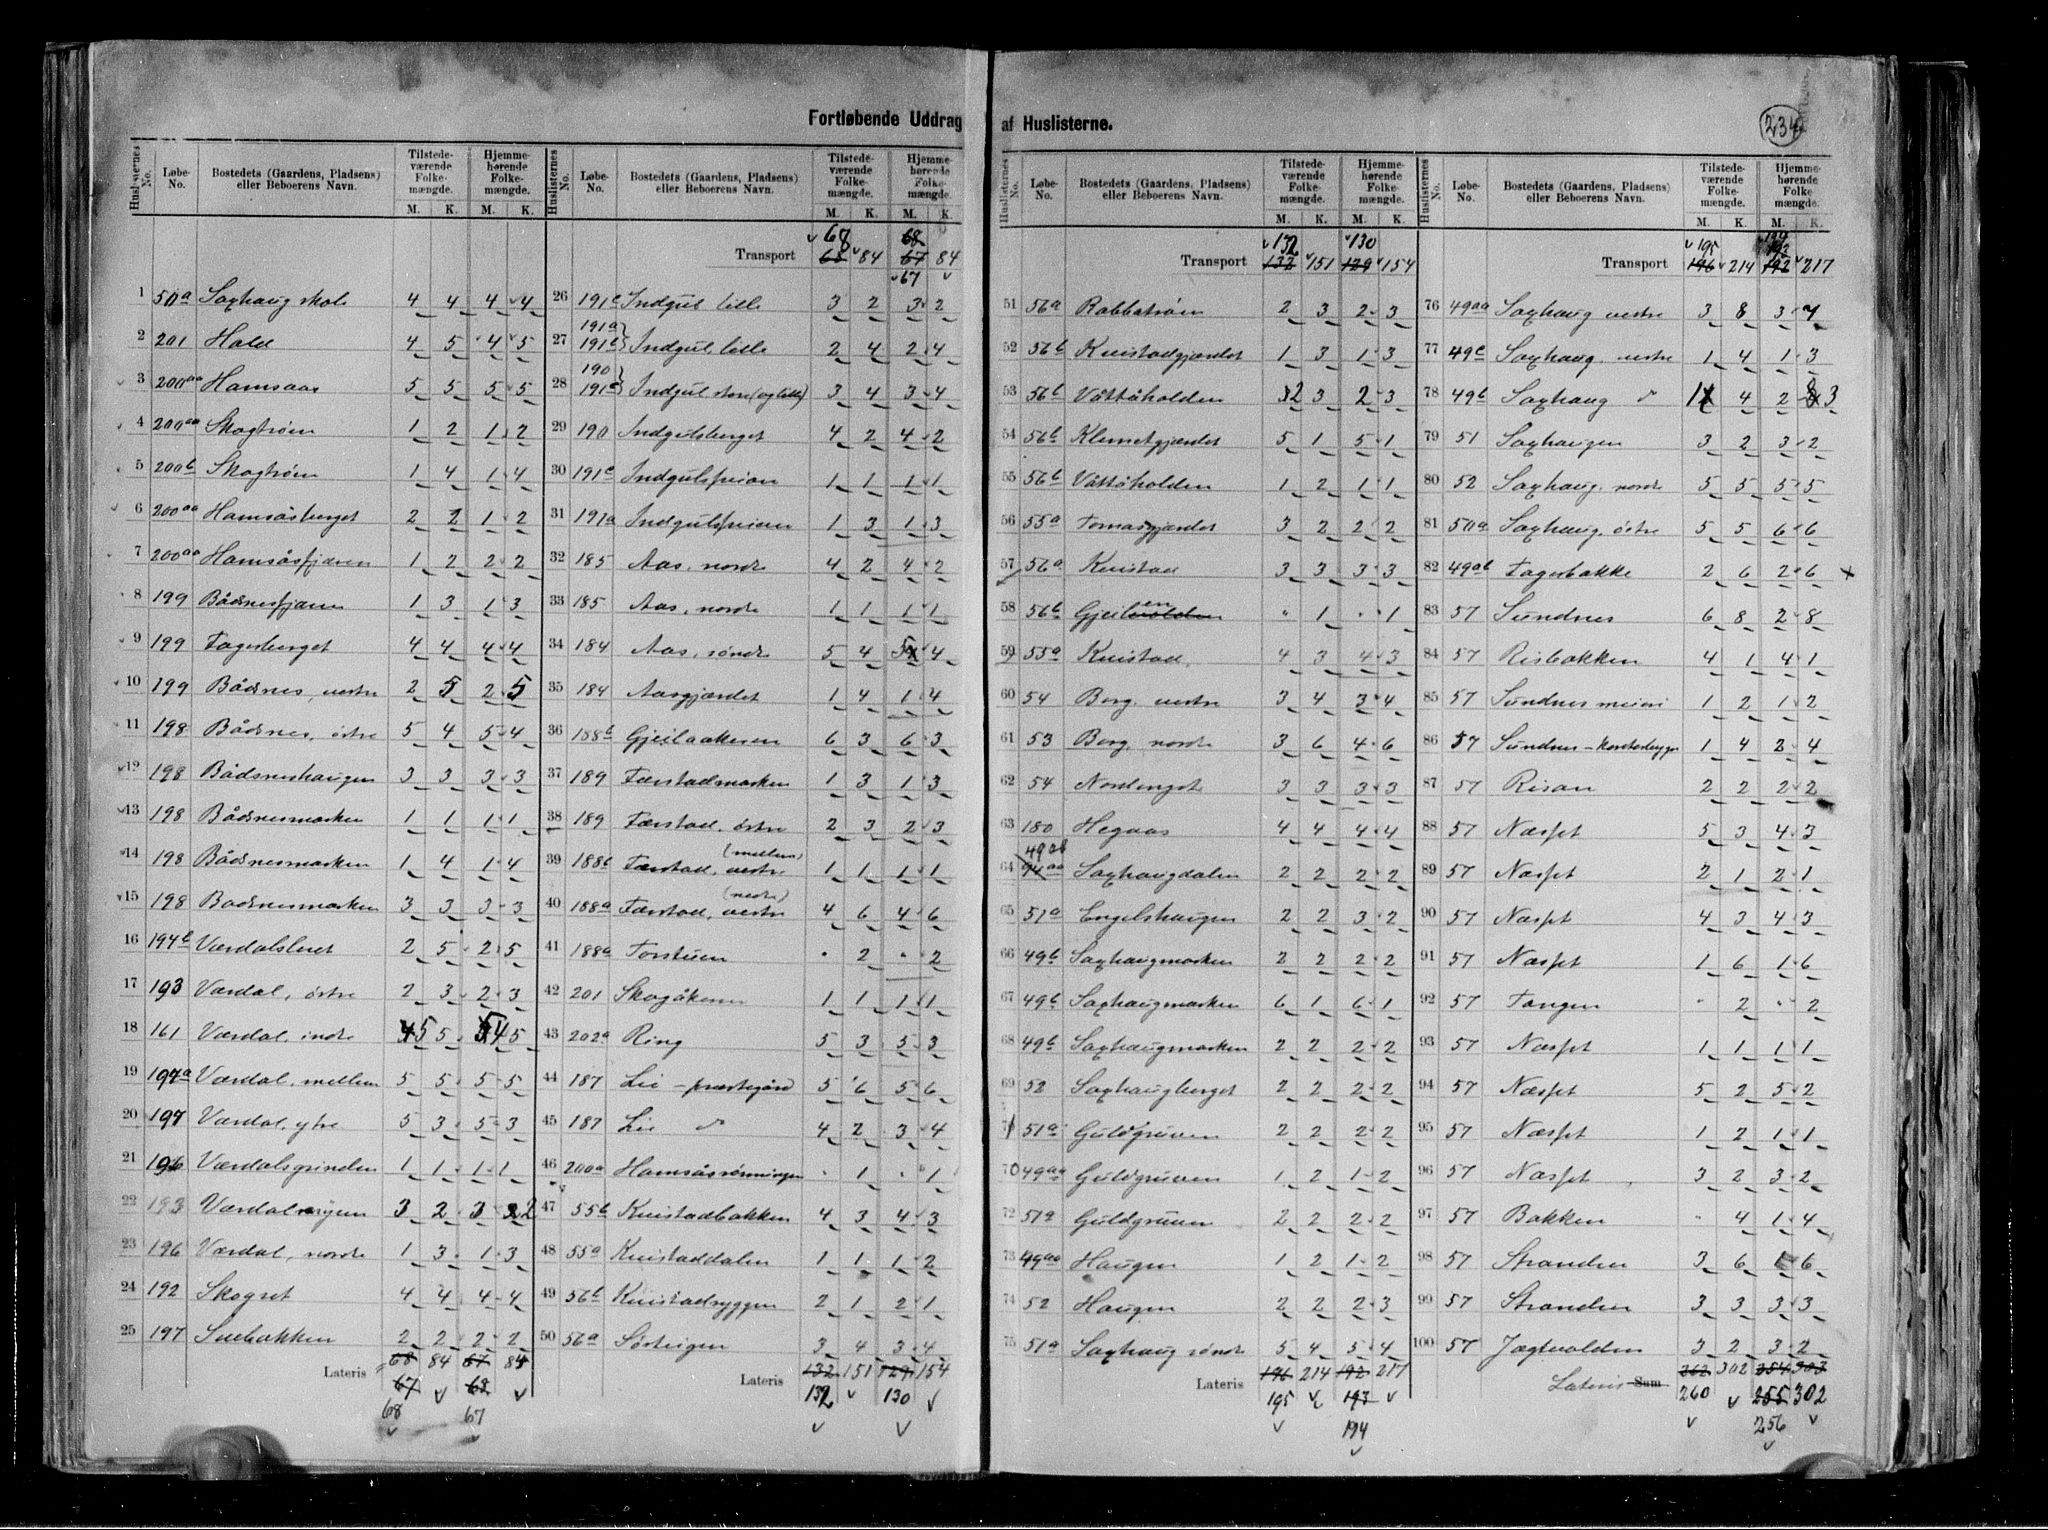 Fortløbende Uddrag af Huslisterne.
234
Huslisternes No. | Løbe-No. | Bostedets (Gaardens, Pladsens) eller Beboerens Navn. | Tilstedeværende Folkemængde. M. K. | Hjemmehørende Folkemængde. M. K.
1 50a Saxhaug skole 4 4 4 4
2 201 Hald 4 5 4 5
3 200aa Hamsaas 5 5 5 5
4 200aa Skogtrøen 1 2 1 2
5 200b Skogtrøen 1 4 1 4
6 200aa Hamsåsberget 2 2 1 2
7 200aa Hamsåsfjæren 1 2 2 2
8 199 Bådsnesfjæren 1 3 1 3
9 199 Fagerberget 4 4 4 4
10 199 Bådsnes, vestre 2 5 2 5
11 198 Bådsnes, östre 5 4 5 4
12 198 Bådsneshaugen 3 3 3 3
13 198 Bådsnesmarken 1 1 1 1
14 198 Bådsnesmarken 1 4 1 4
15 198 Badsnesmarken 3 3 3 3
16 194b Værdalsleret 2 5 2 5
17 193 Værdal, östre 2 3 2 3
18 161 Værdal, indre 5 5 4 5
19 194a Værdal, mellem 5 5 5 5
20 197 Værdal, ytre 5 3 5 3
21 196 Værdalsgrinden 1 1 1 1
22 193 3 2 3 2
23 196 Værdal, nordre 1 3 1 3
24 192 Skogset 4 4 4 4
25 197 Suebakken 2 2 2 2
Lateris 68 84 67 84
67 68
68 67
Transport 67 68
68 84 67 84
67
26 191c Indgul lille 3 2 3 2
27 191a 191b Indgul, lille 2 4 2 4
28 190 191c Indgul store (og lille) 3 4 3 4
29 190 Indgulsberget 4 2 4 2
30 191c 1 1 1 1
31 191a 1 3 1 3
32 185 Aas, nordre 4 2 4 2
33 185 Aas, nordre 1 1 1 1
34 184 Aas, søndre 5 4 5 4
35 184 Aasgjærdet 1 4 1 4
36 188b Gjeilaakeren 6 3 6 3
37 189 Færstadmarken 1 3 1 3
38 189 Færstad, östre 2 3 2 3
39 188b Færstad, vestre (mellem) 1 1 1 1
40 188a Færstad, vestre (nedre) 4 6 4 6
41 188a Forstuen " 2 " 2
42 201 Skogåkeren 1 1 1 1
43 202a Ring 5 3 5 3
44 187 Lie - præstegård 5 6 5 6
45 187 Lie do 4 2 3 4
46 200a Hamsåsrønningen " 1 " 1
47 55b Kvistadbakken 4 3 4 3
48 55a Kvistaddalen 1 1 1 2
49 56b Kvistadryggen 2 1 2 1
50 56a Sörteigen 3 4 3 4
Lateris 132 151 129 154
132 130
Transport 132 130
132 151 129 154
51 56a Rabbatrøen 2 3 2 3
52 56b Kvistadgjærdet 1 3 1 3
53 56b Våttåholden 2 3 2 3
54 56b Klemetgjærdet 5 1 5 1
55 56b Våttåholden 1 2 1 1
56 55a Tomasgjærdet 3 2 2 2
57 56a Kvistad 3 3 3 3
58 56b Gjeilen " 1 " 1
59 55a Kvistad, 4 3 4 3
60 54 Borg, vestre 3 4 3 4
61 53 Borg, nordre 3 6 4 6
62 54 Nordenget 3 3 3 3
63 180 Hegaas 4 4 4 4
64 Saxhaugdalen 2 2 2 2
65 51a Engelshaugen 2 2 3 2
66 49b Saxhaugmarken 2 2 2 2
67 49b Saxhaugmarken 6 1 6 1
68 49b Saxhaugmarken 2 2 2 2
69 52 Saxhaugberget 2 2 2 2
71 51a Guldgruven 2 2 2 2
70 49aa Guldgruven 1 2 1 2
72 51a Guldgruven 2 2 2 2
73 49aa Haugen 1 2 1 2
74 52 Haugen 2 2 2 3
75 51a Saxhaug söndre 5 4 5 4
Lateris 196 214 192 217
195 193
194
Transport 195 194
196 214 192 217
76 49aa Saxhaug vestre 3 8 3 7
77 49c Saxhaug, vestre 1 4 1 3
78 49b Saxhaug do 1 4 2 3
79 51 Saxhaugen 3 2 3 2
80 52 Saxhaug, nordre 5 5 5 5
81 50a Saxhaug, östre 5 5 6 6
82 49ab Fagerbakke 2 6 2 6
83 57 Sundnes 6 8 2 8
84 57 Risbakken 4 1 4 1
85 57 Sundnes meieri 1 2 1 2
86 57 1 4 2 4
87 57 Risan 2 2 2 2
88 57 Næsset 5 3 4 3
89 57 Næsset 2 1 2 1
90 57 Næsset 4 3 4 3
91 57 Næsset 1 6 1 6
92 57 Tangen " 2 " 2
93 57 Næsset 1 1 1 1
94 57 Næsset 5 2 5 2
95 57 Næsset 1 2 1 1
96 57 Næsset 3 2 3 2
97 57 Bakken " 4 1 4
98 57 Stranden 3 6 1 6
99 57 Stranden 3 3 3 3
100 57 Jægtvolden 3 2 3 2
Lateris Sum 262 302 254 303
260 255 302
256